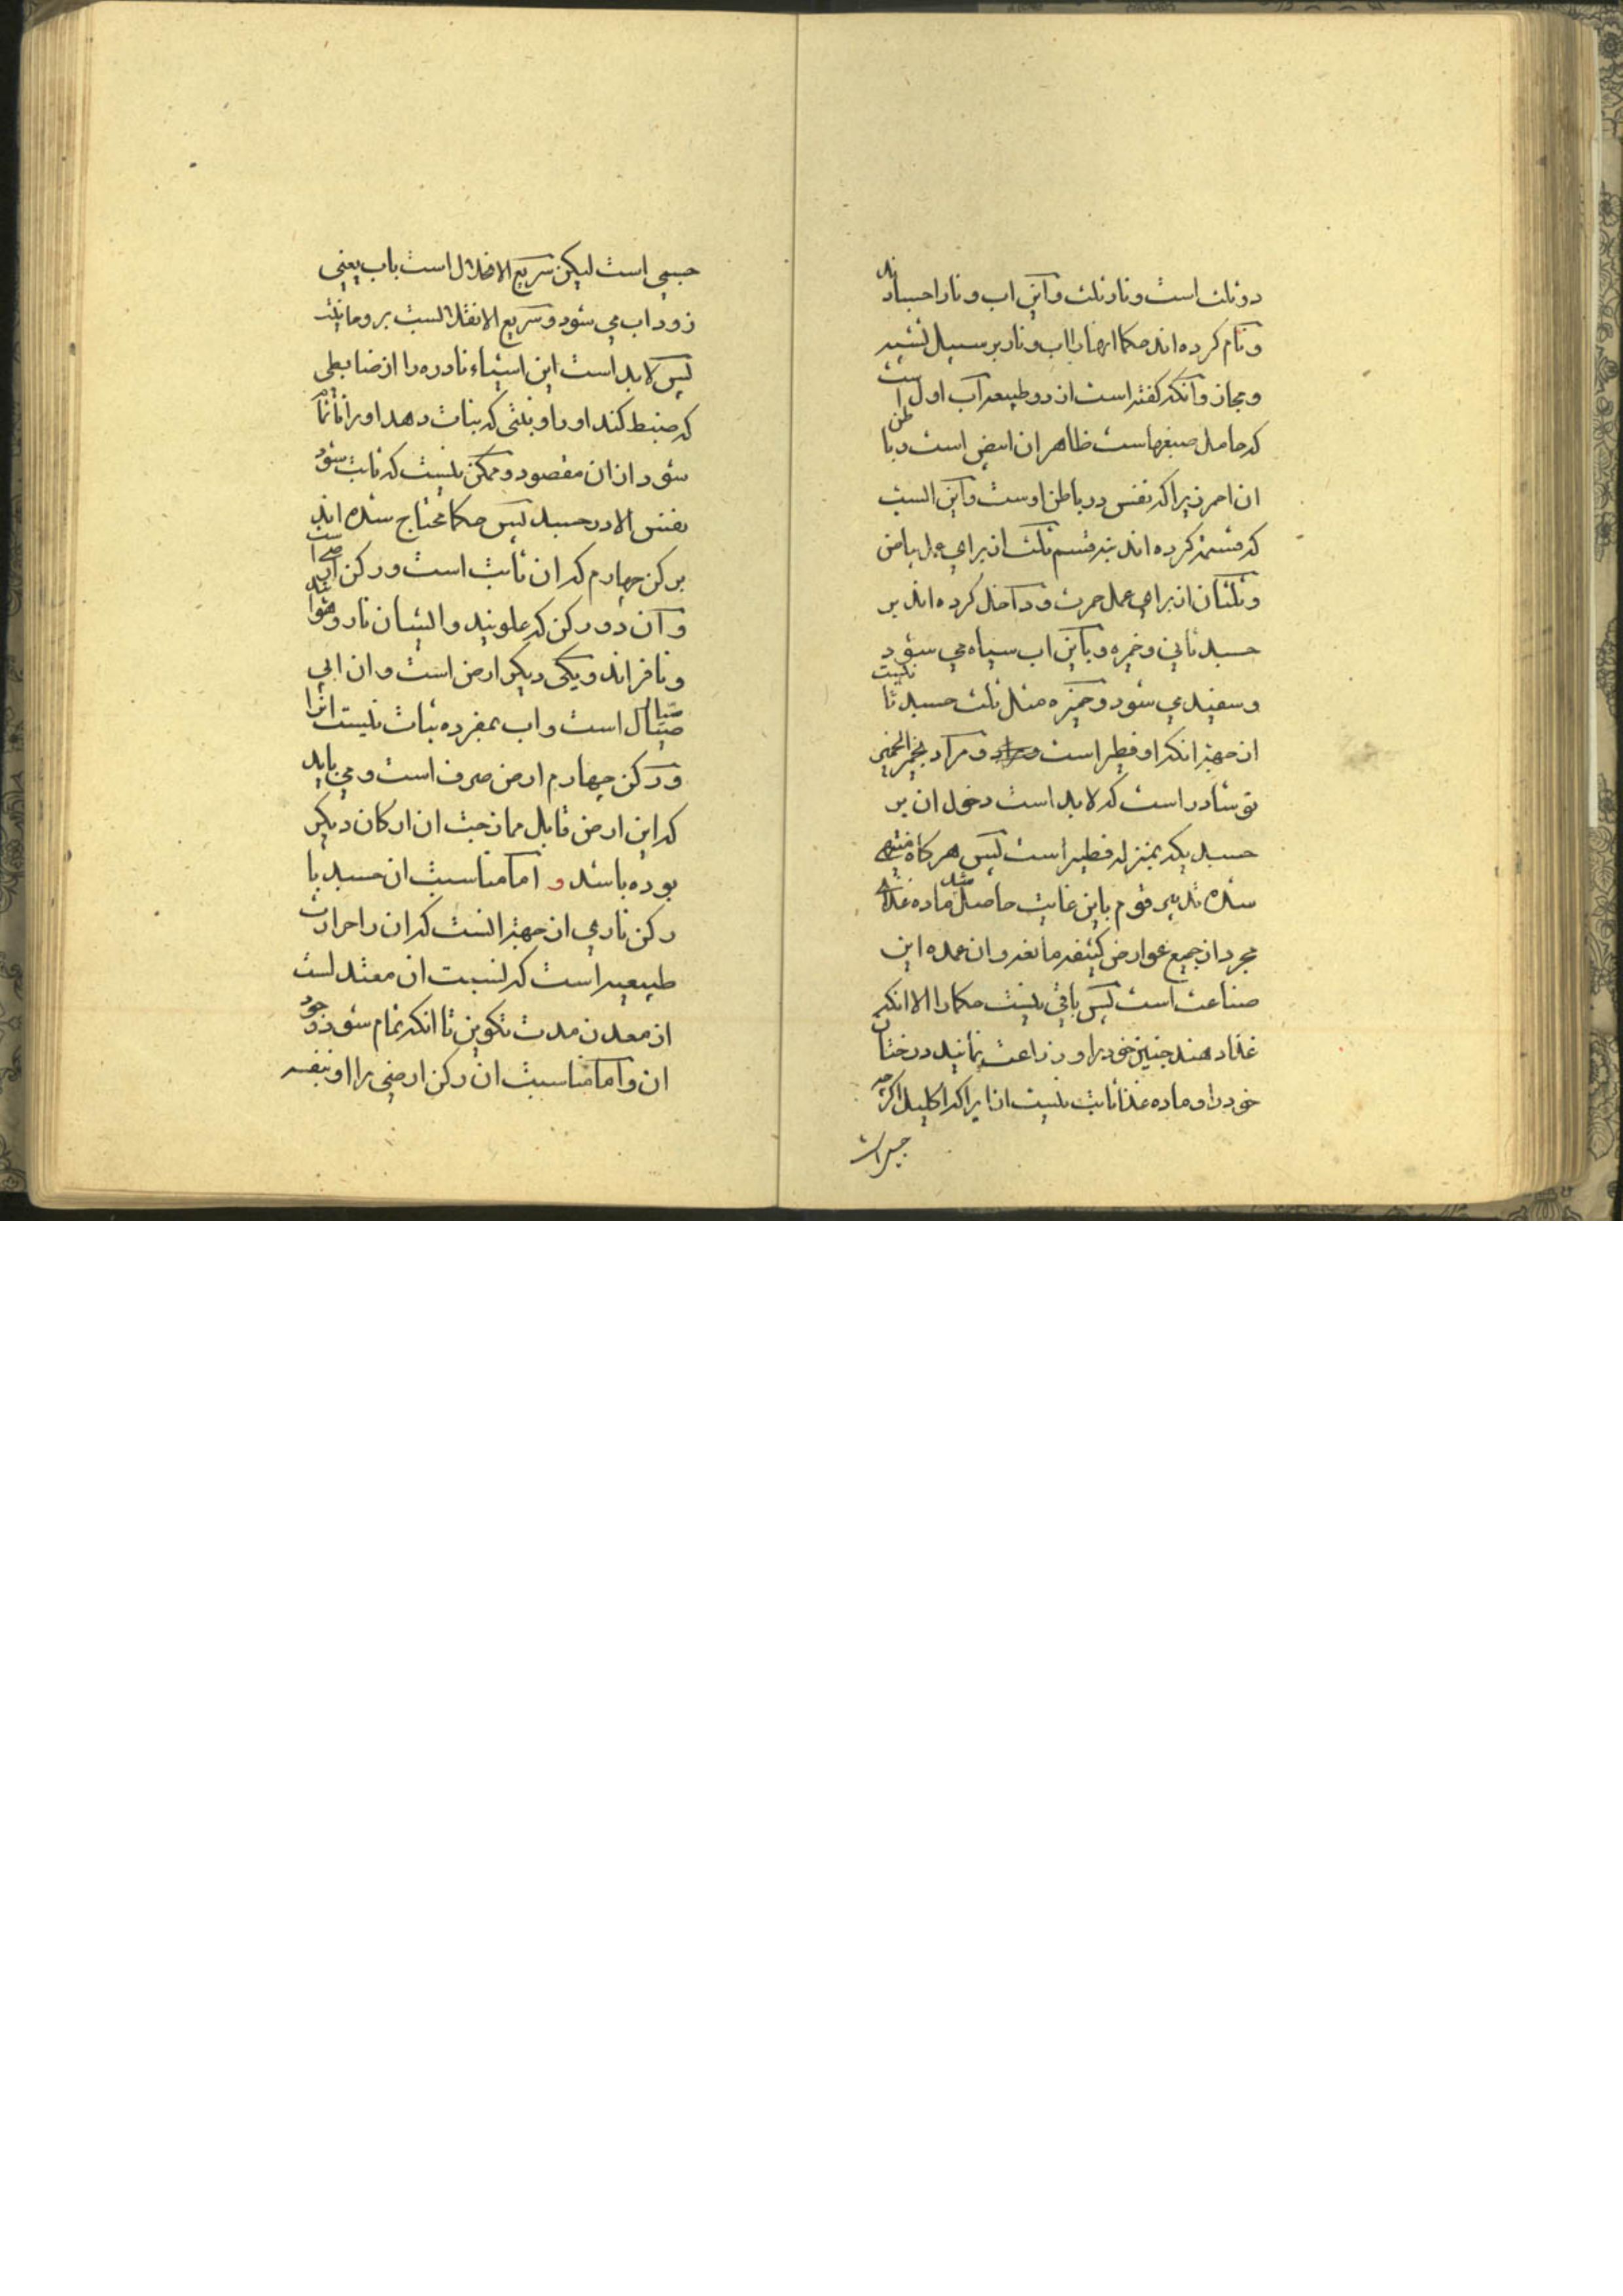 دو ثلث است و نار ثلث و این اب و نار احساد اند
و نام کرده اند حکما انها را اب و نار بر سبیل تشبیه
و مجاز و انکه کفته است از دو طبیعه آب اول است
که حامل صبغهاست ظاهر ان ابیض است و باطن
ان احمر زیرا که نفس در باطن اوست و این انست
که قسمة کرده اند بنه قسم ثلث ان برای عمل بیاض
و ثلثان از برای عمل حمرت و داخل کرده اند بر
جسد ثانی و خمیره و باین اب سیاه می شود
و سفید می شود و خمیره مثل ثلث جسد ثا نیست
از جهة انکه او فطیر است و مراد بخمیر
نوشادر است که لابد است دخول ان بر
جسد یکه بمنزله فطیر است پس هر کاه منتهی
شده تدبیر قوم باین غایت حاصل شد ماده غذائی
مجرد از جمیع عوارض کثیفه مانعه و ان عمده این
صناعت است پس باقی نیست حکما را الا انکه
غذا دهند جنین خود را و زراعت نمانید درختان
خود را و ماده غذا ثابت نیست از ایرا که اکلیل اکرچه
جسمی است لیکن سریع الانحلال است باب یعنی
زود اب می شود و سریع الانقلابست بروحانیت
پس لابد است این اشیاء نادره را از ضابطی
که ضبط کند او را و بثثی که ثبات دهد او را تا تمام
شود از ان مقصود و ممکن نیست که ثابت شود
بفنس الا در جسد پس حکما محتاج شده اند
بر کن چهارم که ان ثابت است و رکن ارضی است
و آن دو رکن که علویند و ایشان نار و هوا اند
و نافراند و یکی دیکر ارض است و ان ابی
سیال است و اب بمفرده ثبات نیست انرا
و رکن چهارم ارض صرف است و می باید
که این ارض قابل ممازجت ان ارکان دیکر
بوده باشد و اما مناسبت ان جسد با
رکن ناری از جهة انست که ان را حرارت
طبیعیه است که نسبت ان معتدلست
از معدن مدت تکوین تا انکه تمام شود وجود
ان و اما مناسبت ان رکن ارضی را او بنفسه